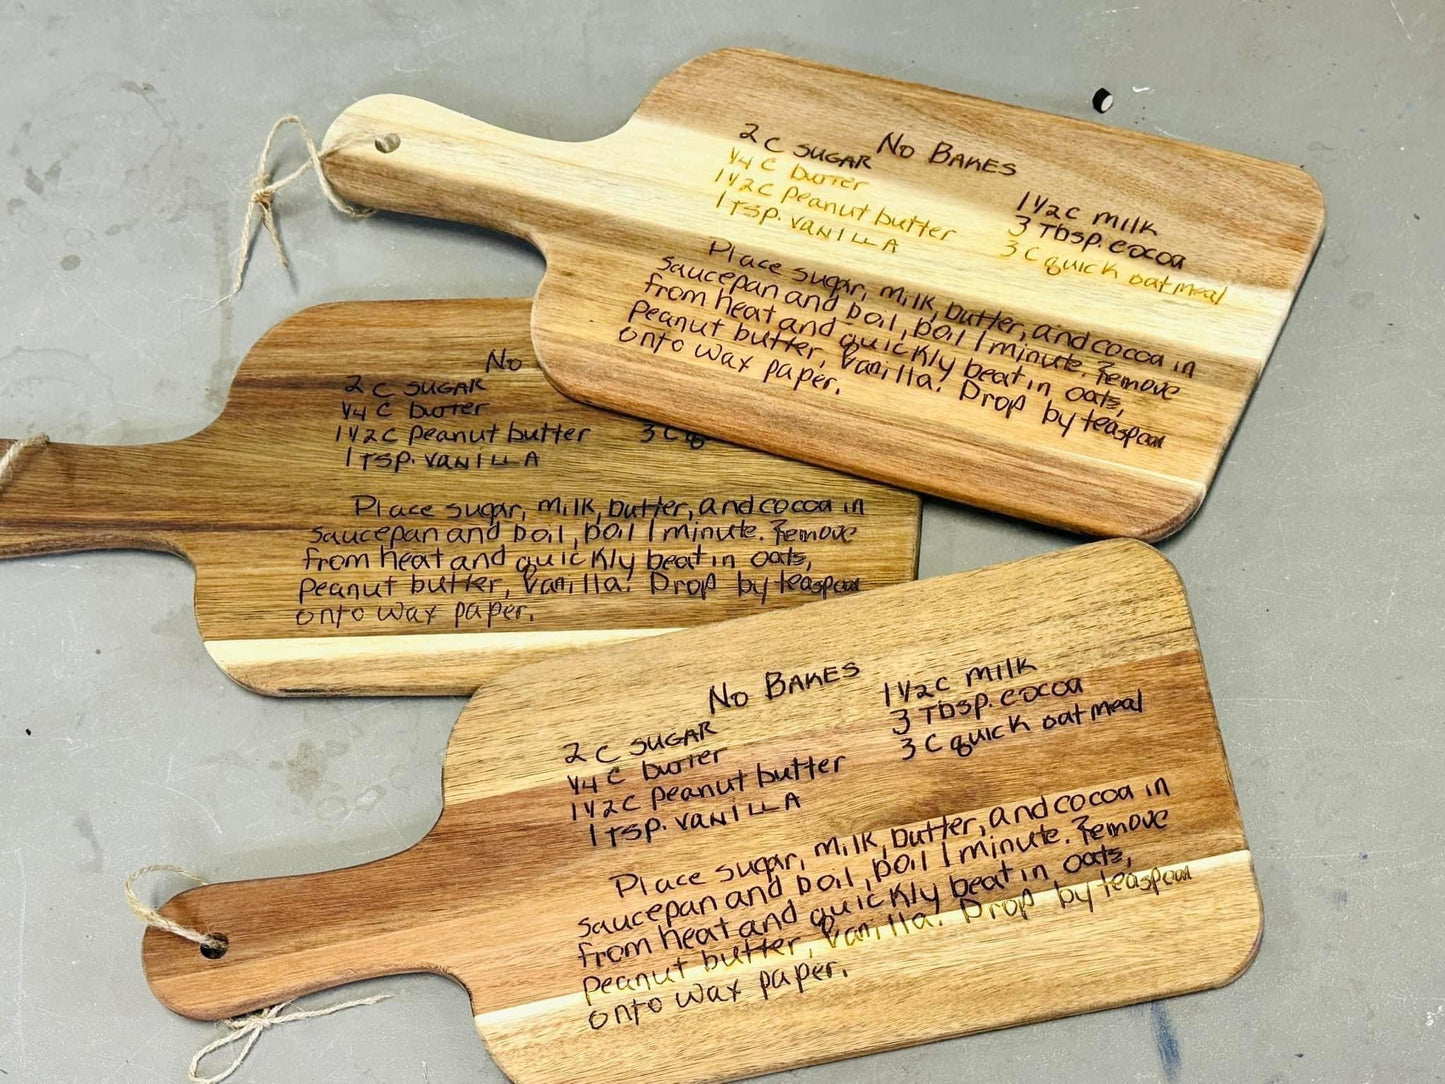 No Bakes
2 C SUGAR
1/4 C butter
1 1/2 C peanut butter
1 TSP. VANILLA
1 1/2 C milk
3 Tbsp. cocoa
3 C quick oatmeal
Place sugar, milk, butter, and cocoa in
saucepan and boil, boil 1 minute. Remove
from heat and quickly beat in oats,
peanut butter, vanilla. Drop by teaspoon
onto wax paper.
No
2 C SUGAR
1/4 C butter
1 1/2 C peanut butter
3 C q
1 TSP. VANILLA
Place sugar, milk, butter, and cocoa in
saucepan and boil, boil 1 minute. Remove
from heat and quickly beat in oats,
peanut butter, vanilla. Drop by teaspoon
onto wax paper.
No Bakes
2 C SUGAR
1/4 C butter
1 1/2 C peanut butter
1 TSP. VANILLA
1 1/2 C milk
3 Tbsp. cocoa
3 C quick oatmeal
Place sugar, milk, butter, and cocoa in
saucepan and boil, boil 1 minute. Remove
from heat and quickly beat in oats,
peanut butter, vanilla. Drop by teaspoon
onto wax paper.